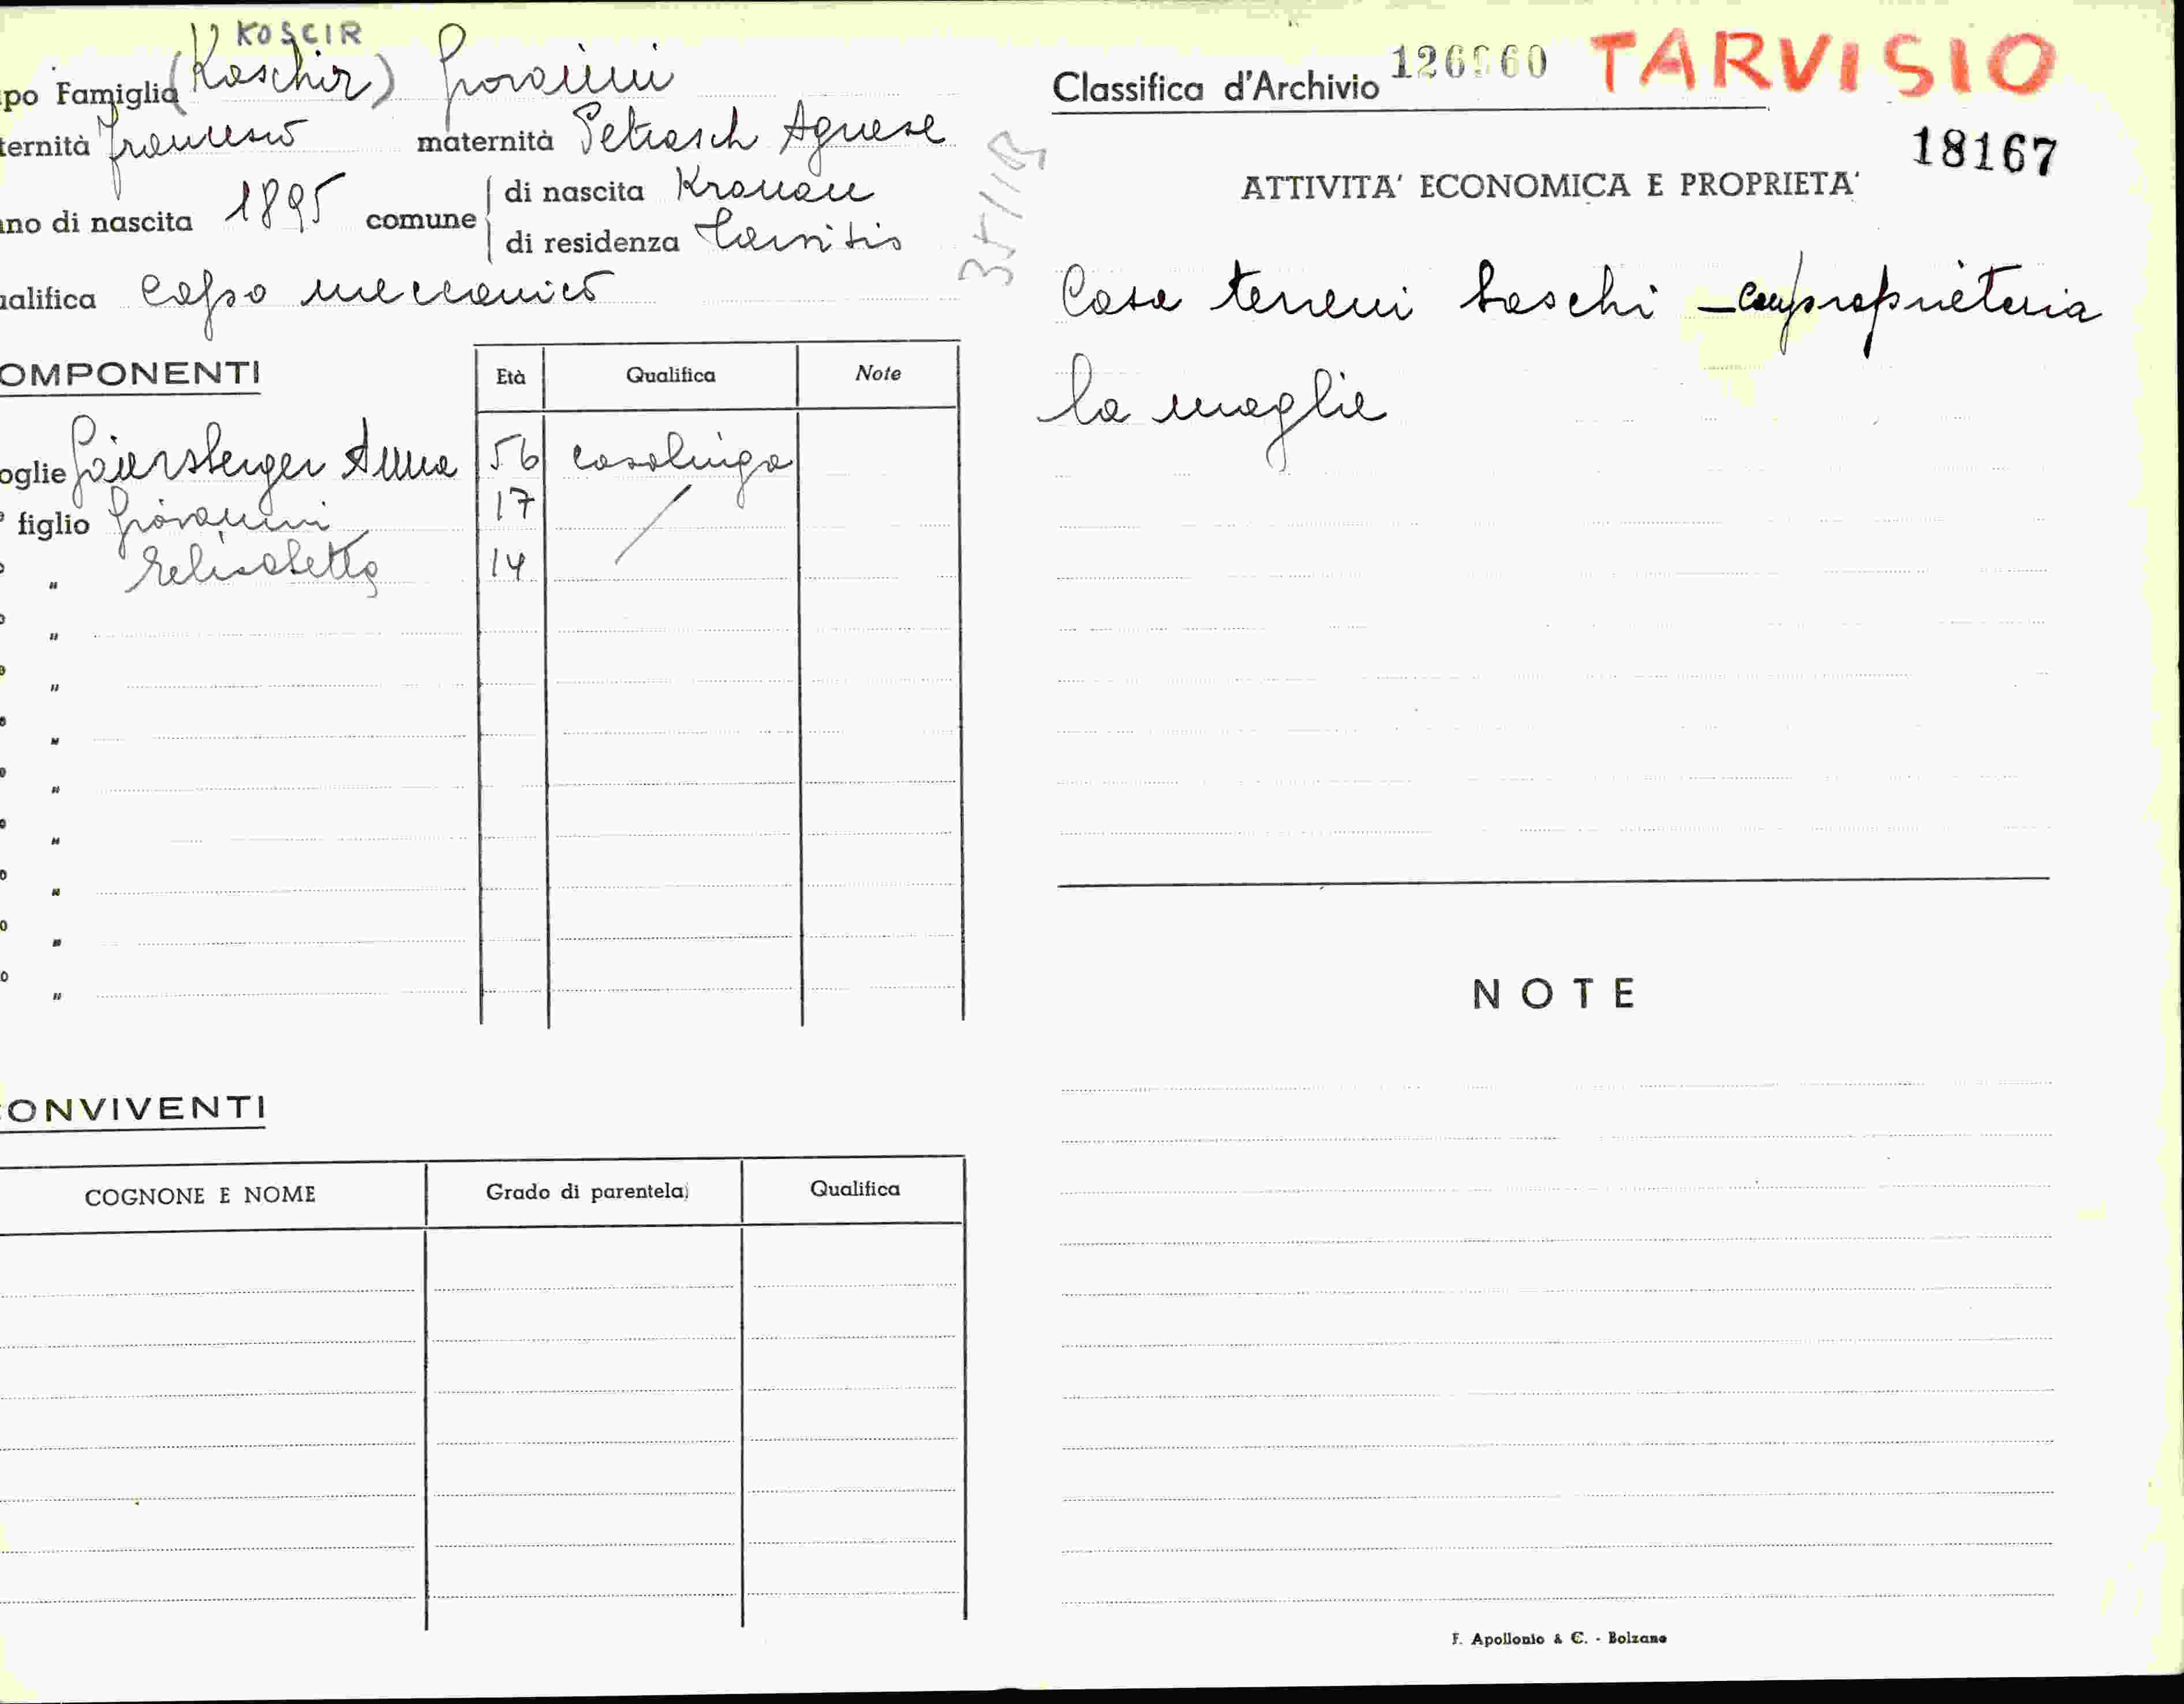 KOSCIR
po Famiglia (Koschir) Giovanni
ternità Francesco maternità Petrasch Agnese
no di nascita 1895 comune di nascita Kronau
di residenza Tarvisio
ualifica Capo meccanico
OMPONENTI Età Qualifica Note
oglie Gaiersberger Anna 56 casalinga
figlio Giovanni 17
" Elisabetta 14
"
"
"
"
"
"
"
"
ONVIVENTI
COGNONE E NOME Grado di parentela Qualifica
35/118
Classifica d'Archivio TARVISIO
18167
ATTIVITA' ECONOMICA E PROPRIETA'
Casa terreni boschi - comproprietaria
la moglie
NOTE
F. Apollonio & C. - Bolzano